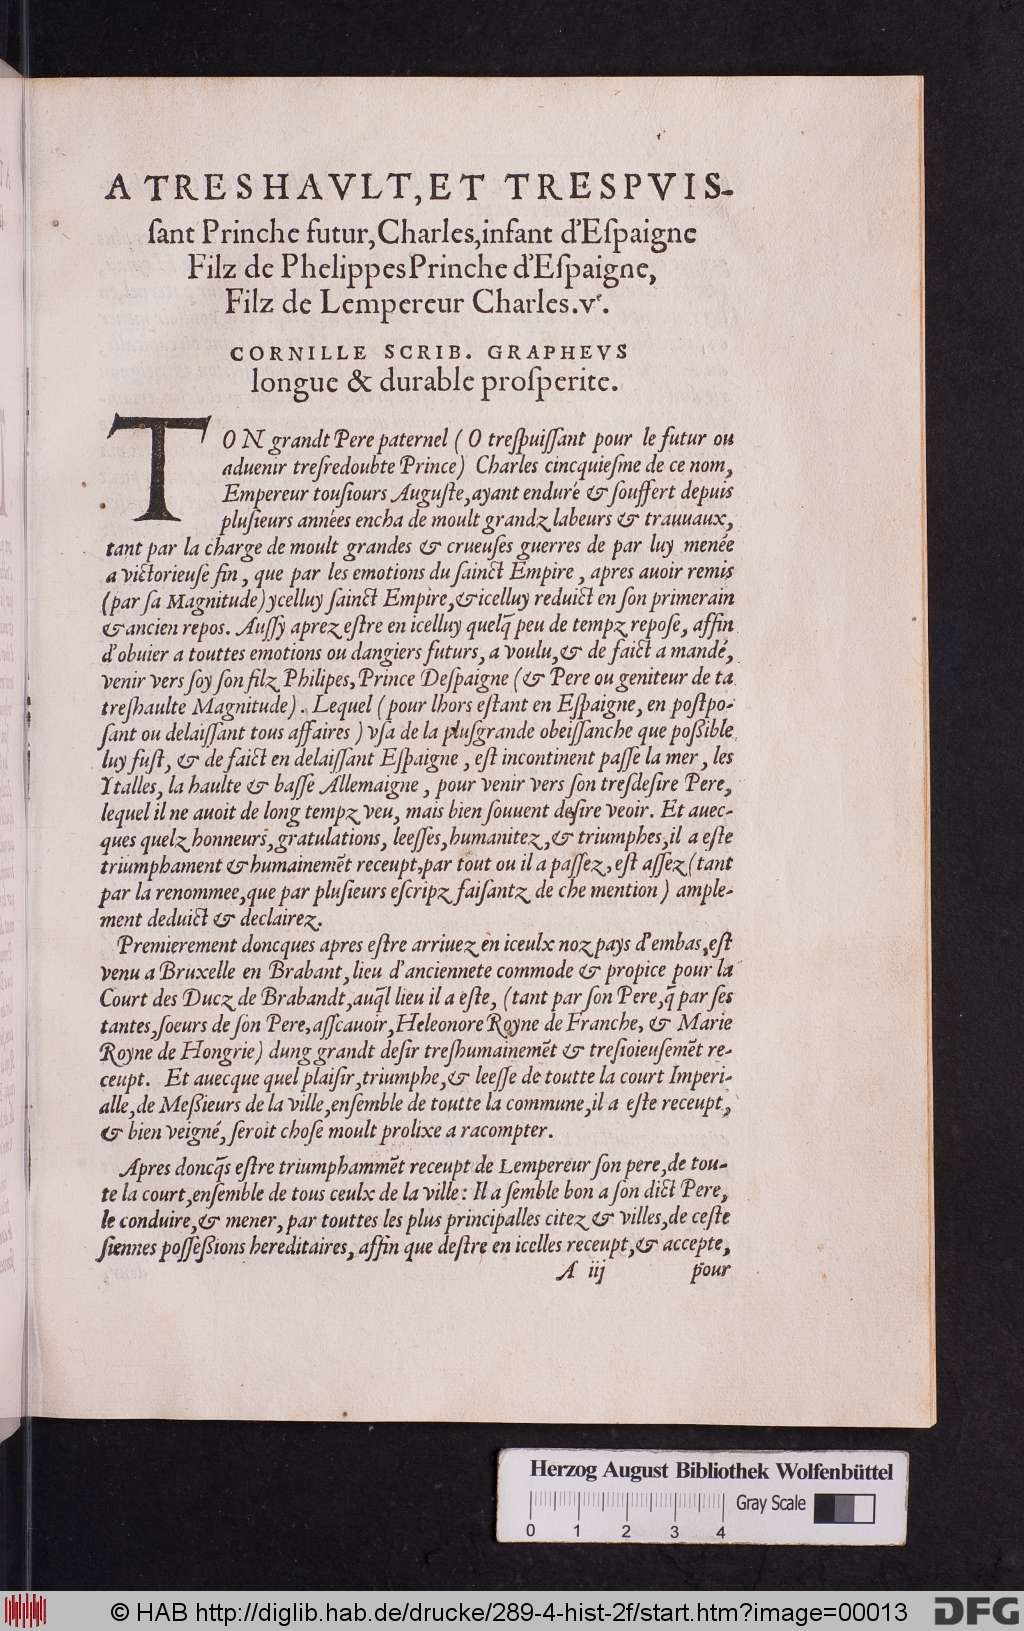 A TRESHAVLT, ET TRESPVIS-
ſant Prinche futur, Charles, infant d'Eſpaigne
Filz de Phelippes Prinche d'Eſpaigne,
Filz de Lempereur Charles.vᵉ.
CORNILLE SCRIB. GRAPHEVS
longue & durable proſperite.
TON grandt Pere paternel (O treſpuiſſant pour le futur ou
aduenir treſredoubte Prince) Charles cincquieſme de ce nom,
Empereur touſiours Auguſte, ayant enduré & ſouffert depuis
pluſieurs années encha de moult grandz labeurs & trauuaux,
tant par la charge de moult grandes & crueuſes guerres de par luy menée
a victorieuſe fin, que par les emotions du ſainct Empire, apres auoir remis
(par ſa Magnitude) ycelluy ſainct Empire, & icelluy reduict en ſon primerain
& ancien repos. Auſſy aprez eſtre en icelluy quelq̃ peu de tempz repoſe, affin
d'obuier a touttes emotions ou dangiers futurs, a voulu, & de faict a mandé,
venir vers ſoy ſon filz Philipes, Prince Deſpaigne (& Pere ou geniteur de ta
treſhaulte Magnitude). Lequel (pour lhors eſtant en Eſpaigne, en poſtpo-
ſant ou delaiſſant tous affaires) vſa de la pluſgrande obeiſſanche que poſſible
luy fuſt, & de faict en delaiſſant Eſpaigne, eſt incontinent paſſe la mer, les
Ytalles, la haulte & baſſe Allemaigne, pour venir vers ſon treſdeſire Pere,
lequel il ne auoit de long tempz veu, mais bien ſouuent deſire veoir. Et auec-
ques quelz honneurs, gratulations, leeſſes, humanitez, & triumphes, il a eſte
triumphament & humainemẽt receupt, par tout ou il a paſſez, eſt aſſez (tant
par la renommee, que par pluſieurs eſcripz faiſantz de che mention) ample-
ment deduict & declairez.
Premierement doncques apres eſtre arriuez en iceulx noz pays d'embas, eſt
venu a Bruxelle en Brabant, lieu d'anciennete commode & propice pour la
Court des Ducz de Brabandt, auq̃l lieu il a eſte, (tant par ſon Pere, q̃ par ſes
tantes, ſoeurs de ſon Pere, aſſcauoir, Heleonore Royne de Franche, & Marie
Royne de Hongrie) dung grandt deſir treſhumainemẽt & treſioieuſemẽt re-
ceupt. Et auecque quel plaiſir, triumphe, & leeſſe de toutte la court Imperi-
alle, de Meſſieurs de la ville, enſemble de toutte la commune, il a eſte receupt,
& bien veigné, ſeroit choſe moult prolixe a racompter.
Apres doncq̃s eſtre triumphammẽt receupt de Lempereur ſon pere, de tou-
te la court, enſemble de tous ceulx de la ville: Il a ſemble bon a ſon dict Pere,
le conduire, & mener, par touttes les plus principalles citez & villes, de ceſte
ſiennes poſſeſſions hereditaires, affin que deſtre en icelles receupt, & accepte,
A iij pour
Herzog August Bibliothek Wolfenbüttel
Gray Scale
0 1 2 3 4
© HAB http://diglib.hab.de/drucke/289-4-hist-2f/start.htm?image=00013 DFG